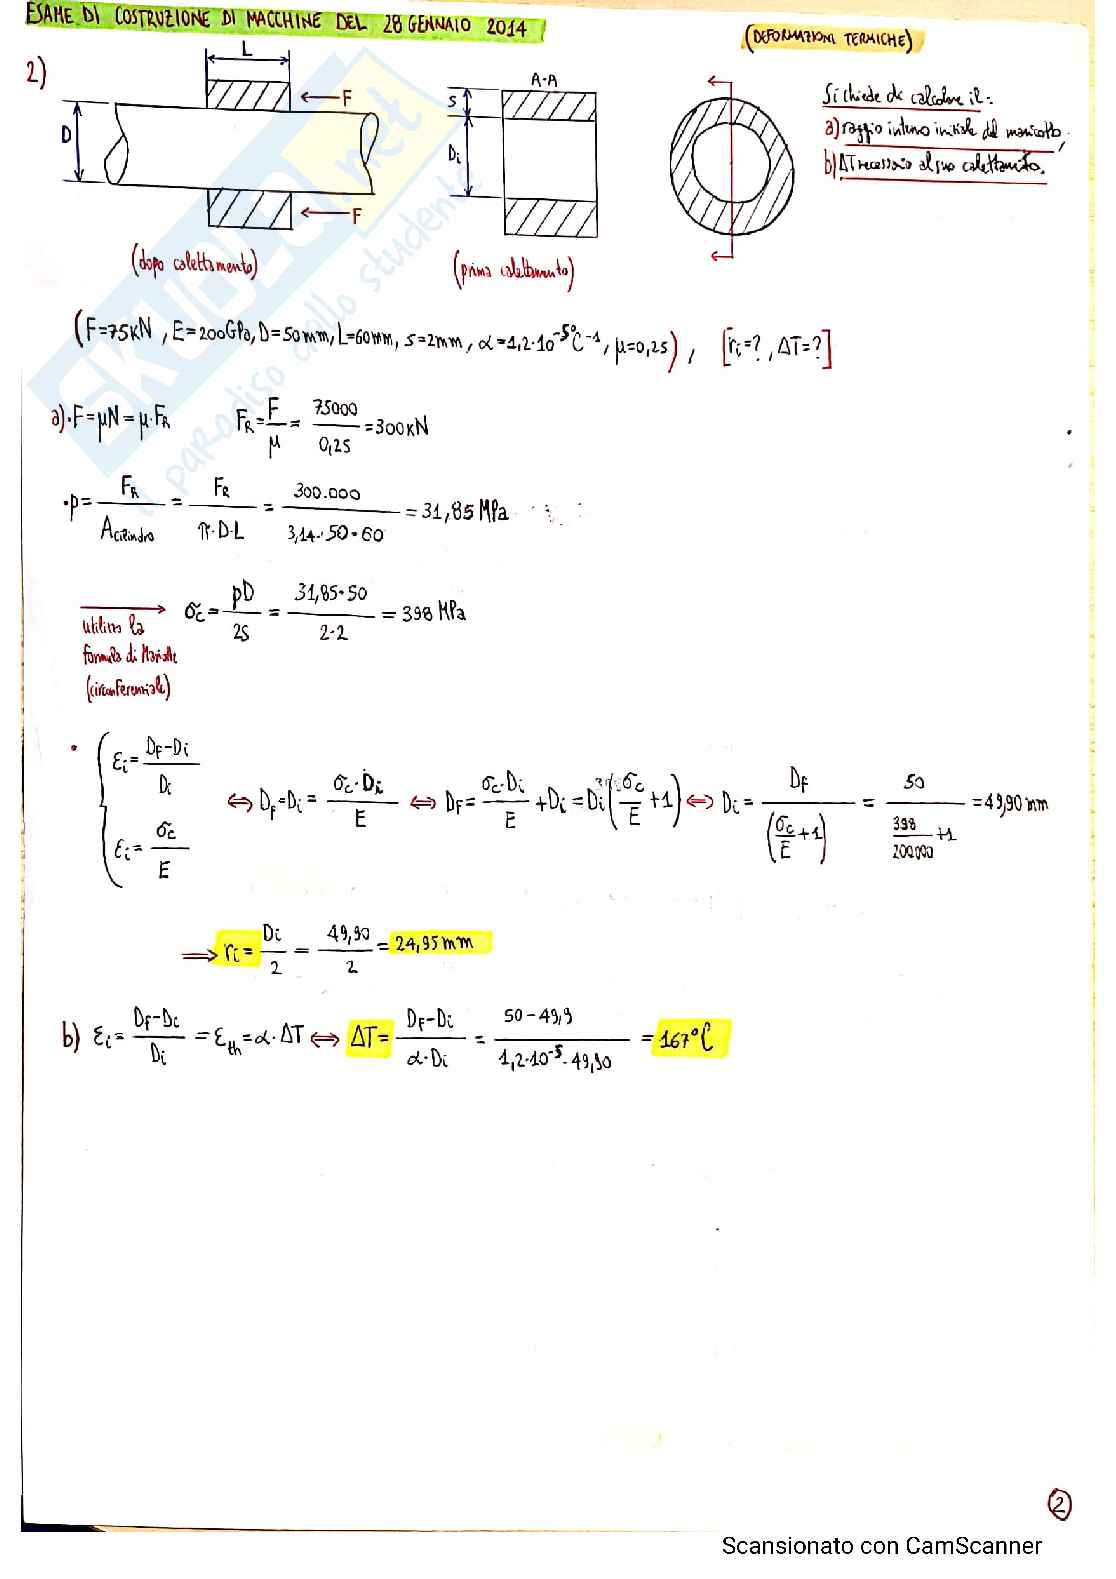 ESAME DI COSTRUZIONE DI MACCHINE DEL 28 GENNAIO 2014
(DEFORMAZIONI TERMICHE)
2)
L
F
D
F
(dopo calettamento)
A-A
S
Di
(prima calettamento)
Si chiede di calcolare il:
a) raggio interno iniziale del manicotto,
b) ΔT necessario al suo calettamento.
(F=75KN, E=200GPa, D=50mm, L=60mm, s=2mm, α=1,2·10⁻⁵°C⁻¹, μ=0,25), [ri=?, ΔT=?]
a)·F=μN=μ·FR FR=F/μ=75000/0,25=300KN
·p=FR/Acilindro=FR/π·D·L=300.000/3,14·50·60=31,85 MPa
utilizzo la formula di Mariotte (circonferenziale) σc=pD/2S=31,85·50/2·2=398 MPa
· { εi=DF-Di/Di
εi=σc/E
⇔ DF=Di=σc·Di/E ⇔ DF=σc·Di/E+Di=Di(σc/E+1) ⇔ Di=DF/(σc/E+1)=50/398/200000+1=49,90 mm
⇒ ri=Di/2=49,90/2=24,95mm
b) εi=DF-Di/Di=εth=α·ΔT ⇔ ΔT=DF-Di/α·Di=50-49,9/1,2·10⁻⁵·49,90=167°C
2
SKUOLA.net
il paradiso dello studente
Scansionato con CamScanner